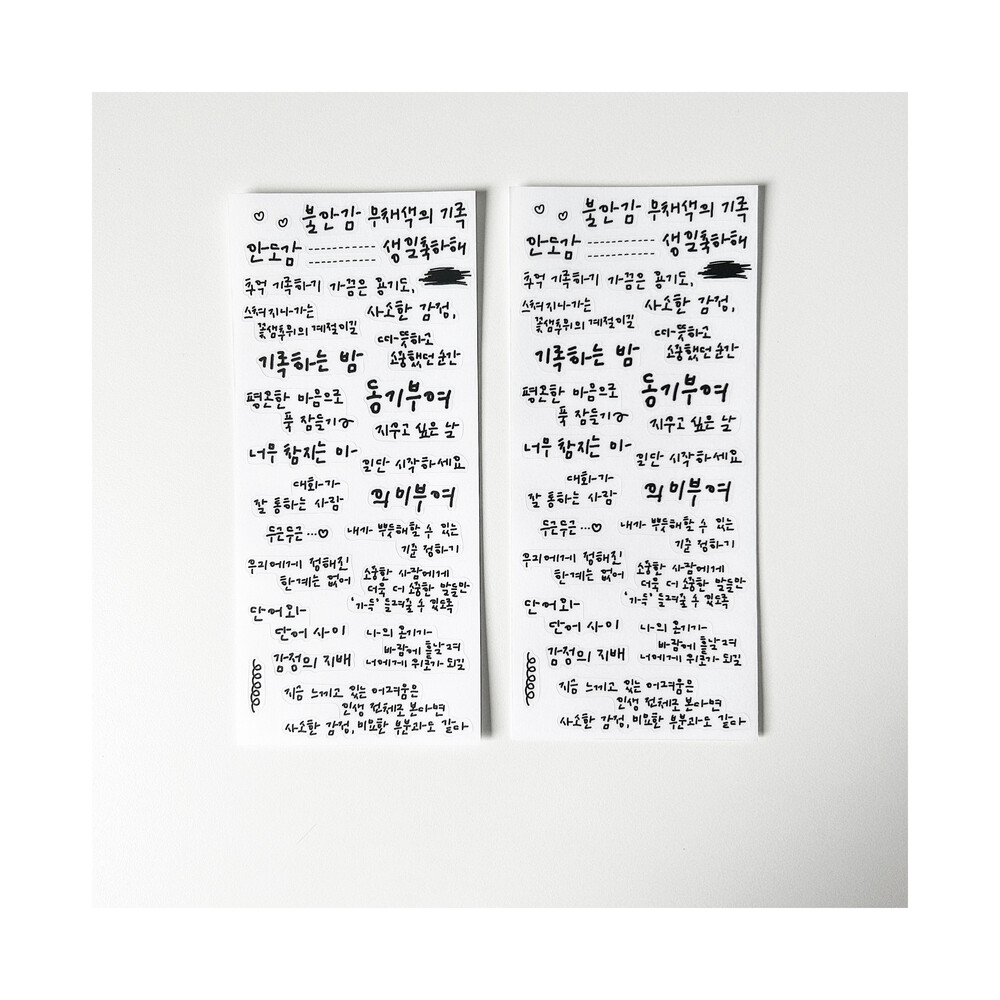 불안감 무채색의 기록
안도감 생일축하해
추억 기록하기 가끔은 용기도,
스쳐지나가는
꽃샘추위의 계절이길
사소한 감정,
따뜻하고
소중했던 순간
기록하는 밤
평온한 마음으로
푹 잠들기
동기부여
지우고 싶은 날
너무 참지는 마
일단 시작하세요
대화가
잘 통하는 사람
의미부여
두근두근...
내가 뿌듯해할 수 있는
기준 정하기
우리에게 정해진
한계는 없어
소중한 사람에게
더욱 더 소중한 말들만
'가득' 들려줄 수 있도록
단어와
단어 사이
나의 온기가
바람에 흩날려
너에게 위로가 되길
감정의 지배
지금 느끼고 있는 어려움은
인생 전체로 본다면
사소한 감정, 미묘한 부분과도 같다
불안감 무채색의 기록
안도감 생일축하해
추억 기록하기 가끔은 용기도,
스쳐지나가는
꽃샘추위의 계절이길
사소한 감정,
따뜻하고
소중했던 순간
기록하는 밤
평온한 마음으로
푹 잠들기
동기부여
지우고 싶은 날
너무 참지는 마
일단 시작하세요
대화가
잘 통하는 사람
의미부여
두근두근...
내가 뿌듯해할 수 있는
기준 정하기
우리에게 정해진
한계는 없어
소중한 사람에게
더욱 더 소중한 말들만
'가득' 들려줄 수 있도록
단어와
단어 사이
나의 온기가
바람에 흩날려
너에게 위로가 되길
감정의 지배
지금 느끼고 있는 어려움은
인생 전체로 본다면
사소한 감정, 미묘한 부분과도 같다